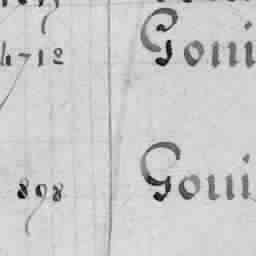 4712 Goui
898 Goui